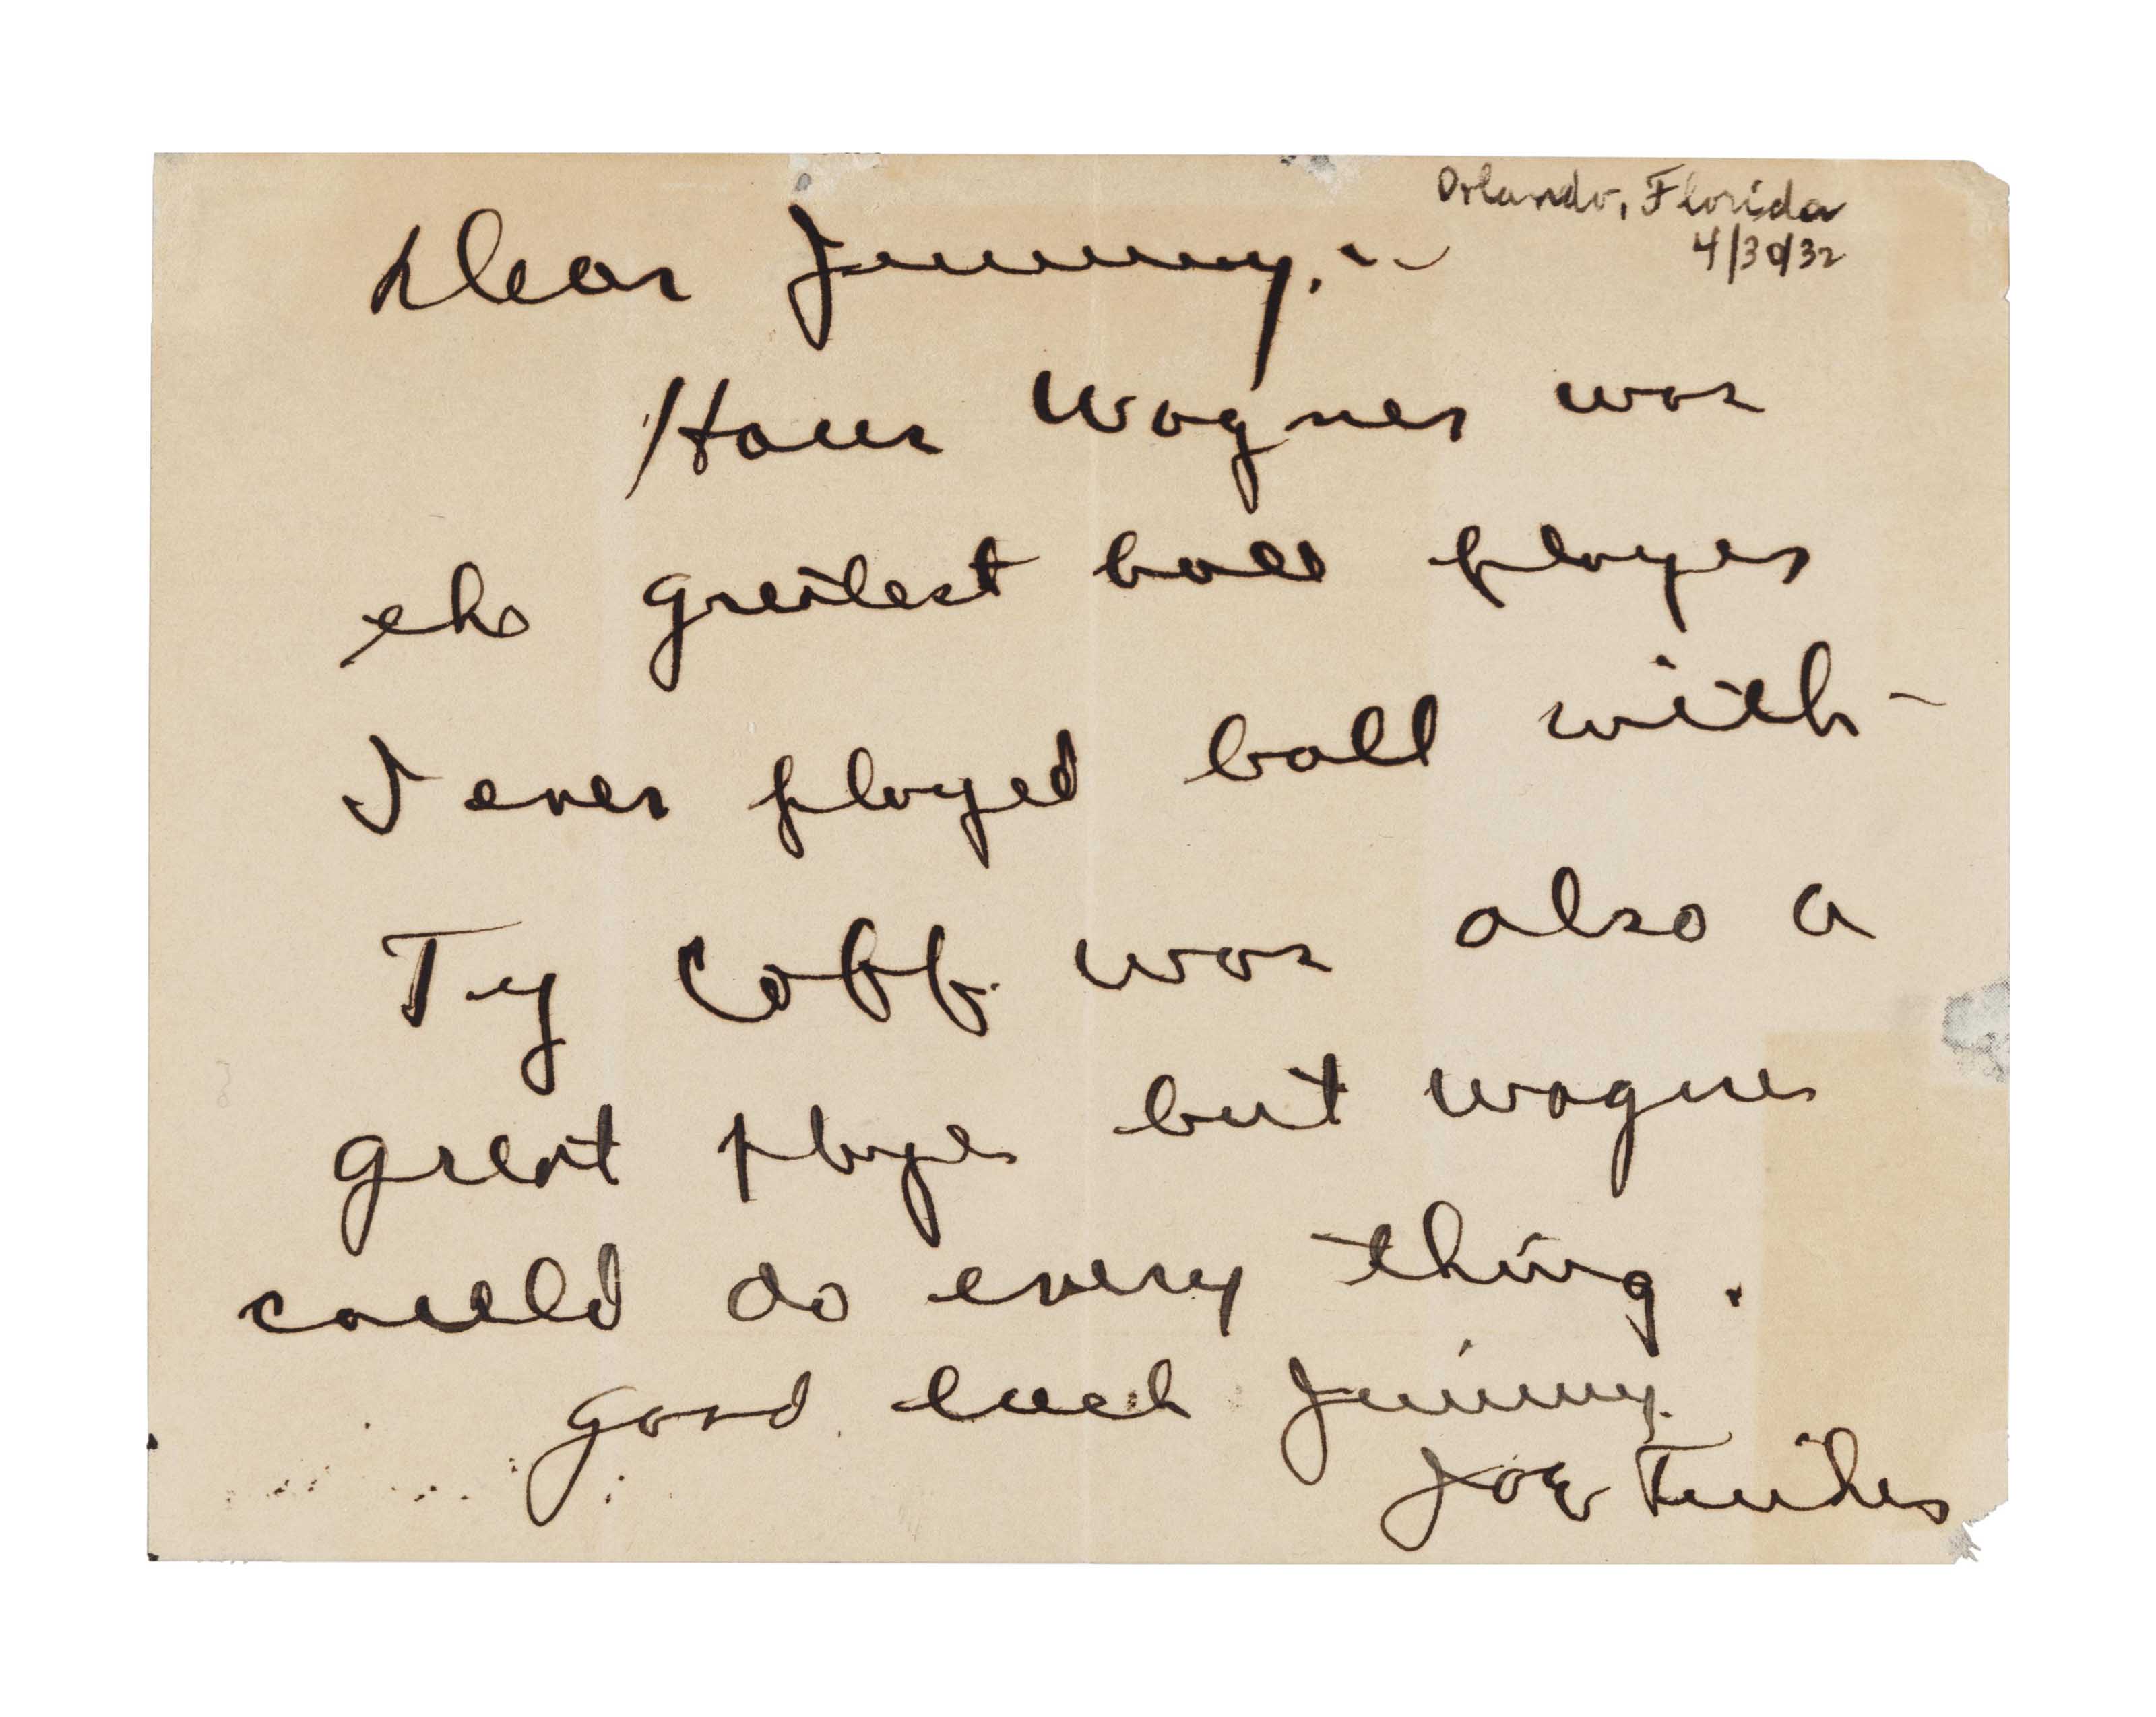 Orlando, Florida
4/30/32
Dear Jimmy,--
Hans Wagner was
the greatest ball player
I ever played ball with-
Ty Cobb was also a
great player but wagner
could do every thing.
good luck Jimmy.
Joe Tinker